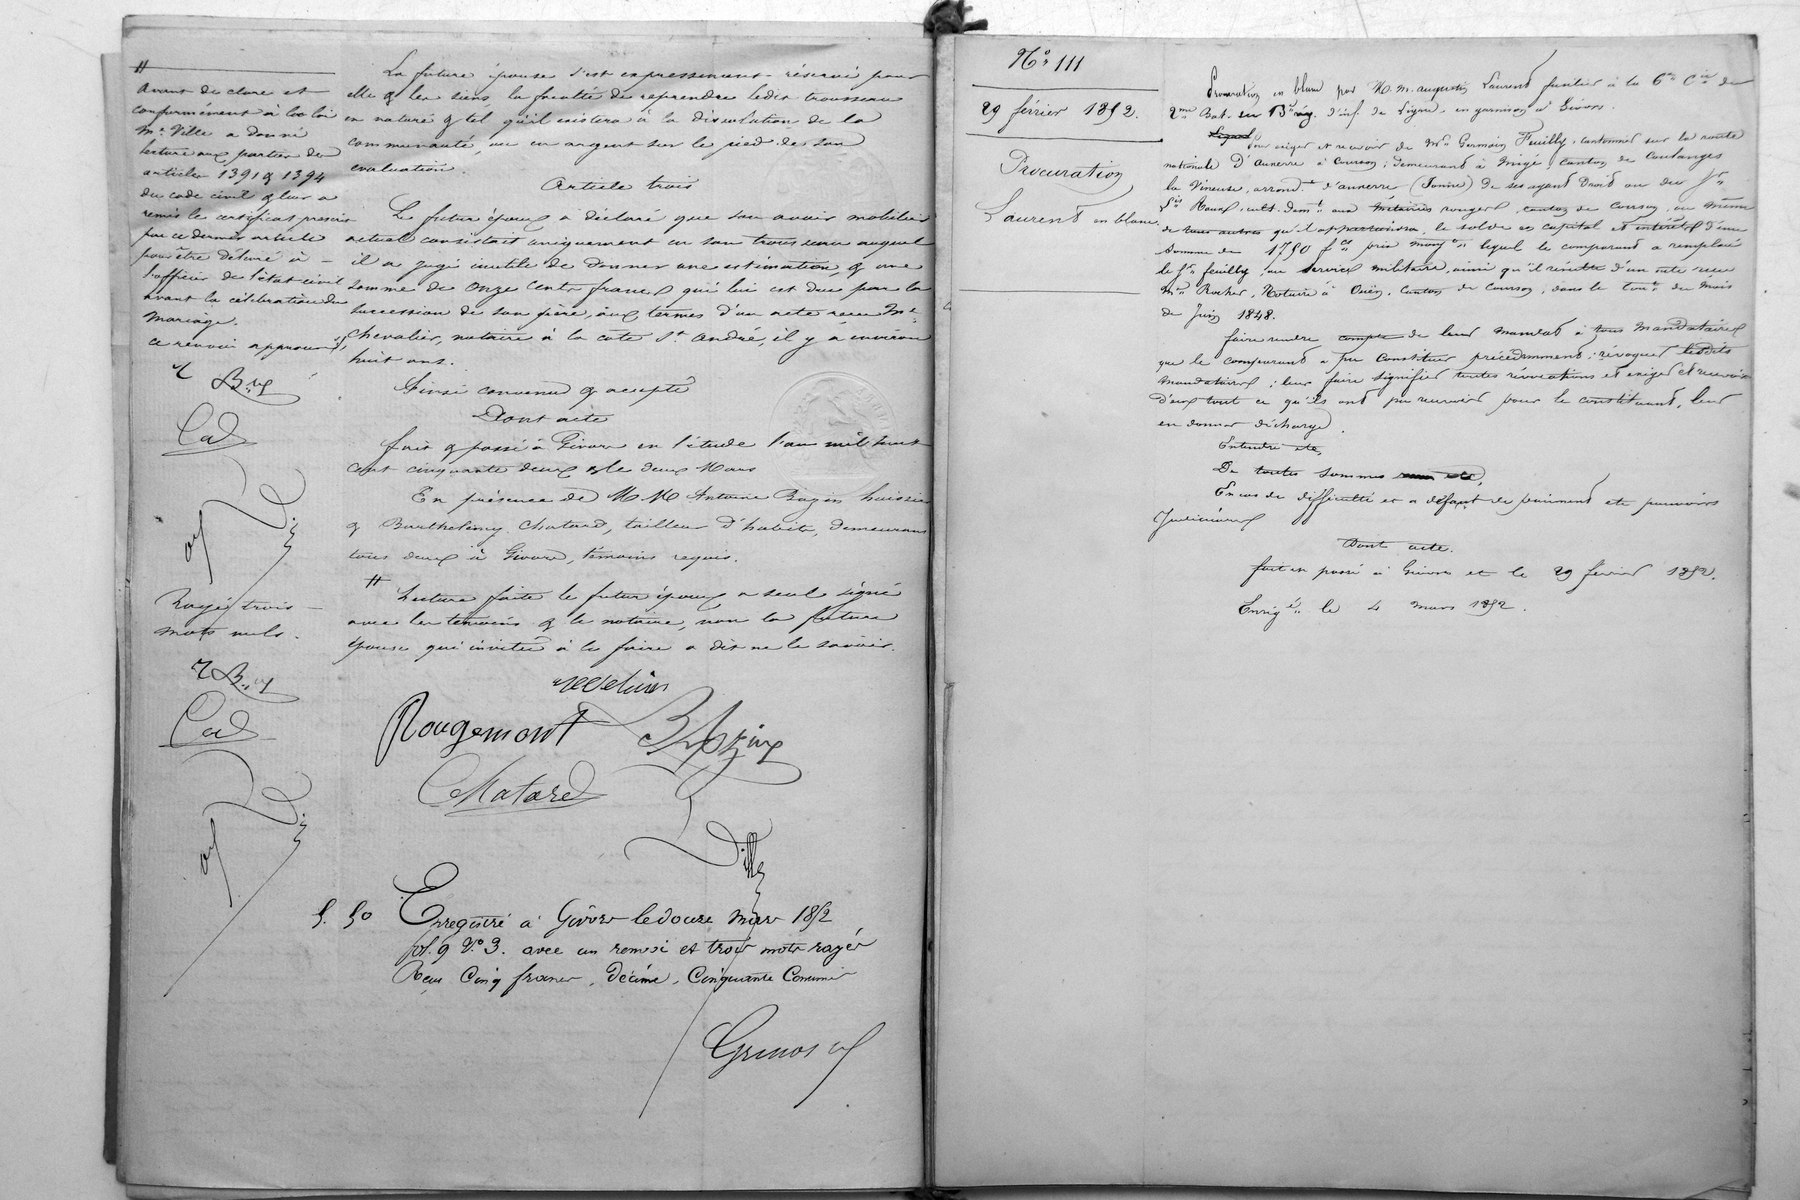 La future épouse s'est expressément réservé pour
elle & les siens, la faculté de reprendre ledit trousseau
en nature & tel qu'il existera à la dissolution de la
communauté, ou en argent sur le pied de son
evaluation.
Article trois
Le futur époux a déclaré que son avoir mobilier
actuel consistait uniquement en son trousseau auquel
il a jugé inutile de donner une estimation & une
somme de onze cents francs qui lui est due par la
succession de son père, aux termes d'un acte reçu Me
Chevalier, notaire à la côte St André, il y a environ
huit ans.
Ainsi convenu & accepté
Dont acte
fait & passé à Givors en l'étude l'an mil huit
cent cinquante deux & le deux Mars
En présence de M.M. Antoine Bazin huissier
& Barthelémy Chatard, tailleur d'habits, demeurant
tous deux à Givors, témoins requis.
# Lecture faite le futur époux a seul signé
avec les témoins & le notaire, non la future
épouse qui invitée à le faire a dit ne le savoir.
#
Avant de clore et
conformément à la loi
Me Ville a donné
lecture aux parties des
articles 1391 & 1394
du code civil & leur a
remis le certificat prescrit
par ce dernier article
pour être délivré à
l'officier de l'état civil
avant la célébration du
mariage.
ce renvoi approuvé
Rayé trois
mots nuls.
Rougemont
Bazin
Chatard
Ville
5. 50 Enregistré à Givors le douze Mars 1852
fol. 9 Vo 3. avec un renvoi et trois mots rayés
Reçu Cinq francs, décime, Cinquante Centimes
No 111
29 février 1852.
Procuration
Laurent en blanc
Procuration en blanc par M. m. augustin Laurent fusilier à la 6me Cie du
2me Bat. du 13e rég. d'inf. de Ligne en garnison à Givors.
Pour exiger et recevoir de Mr Germain Feuilly, cantonnier sur la route
nationale D'auxerre à Courson, demeurant à Migé, canton de Coulanges
la Vineuse, arrondt d'auxerre (Yonne) De ses ayant Droit ou du Sr
Roux, cult. demt aux métairies rouges, canton de Courson, ou même
de tous autres qu'il appartiendra, le solde en capital et intérêts d'une
somme de 1750 fcs prix moyt lequel le comparant a remplacé
le Sr feuilly au service militaire, ainsi qu'il résulte d'un acte reçu
Me Rocher, Notaire à Ouën, Canton de Courson, dans le cout du mois
de Juin 1848.
faire rendre compte de leur mandat à tous mandataires
que le comparant a pu constituer précédemment; révoquer lesdits
mandataires; leur faire signifier toutes révocations et exiger et recevoir
d'eux tout ce qu'ils ont pu recevoir pour le constituant, leur
en donner décharge.
Entendre etc,
De toutes sommes
En cas de difficulté et a défaut de paiement etc pouvoirs
Judiciaires
Dont acte.
fait et passé à Givors et le 29 février 1852.
Enrigé le 4 mars 1852.